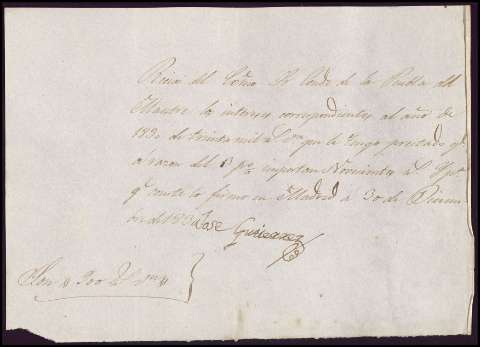 Recivi del Exmo Sr Conde de la Puebla del
Maestre los intereses correspondientes al año de
1830 de treinta mil rs vn que le tengo prestados
a razon del 3 p% importan Novecientos rs
qe conste lo firmo en Madrid a 30 de Diciem
bre de 1830 Jose Gutierrez
Son 900 rs vn